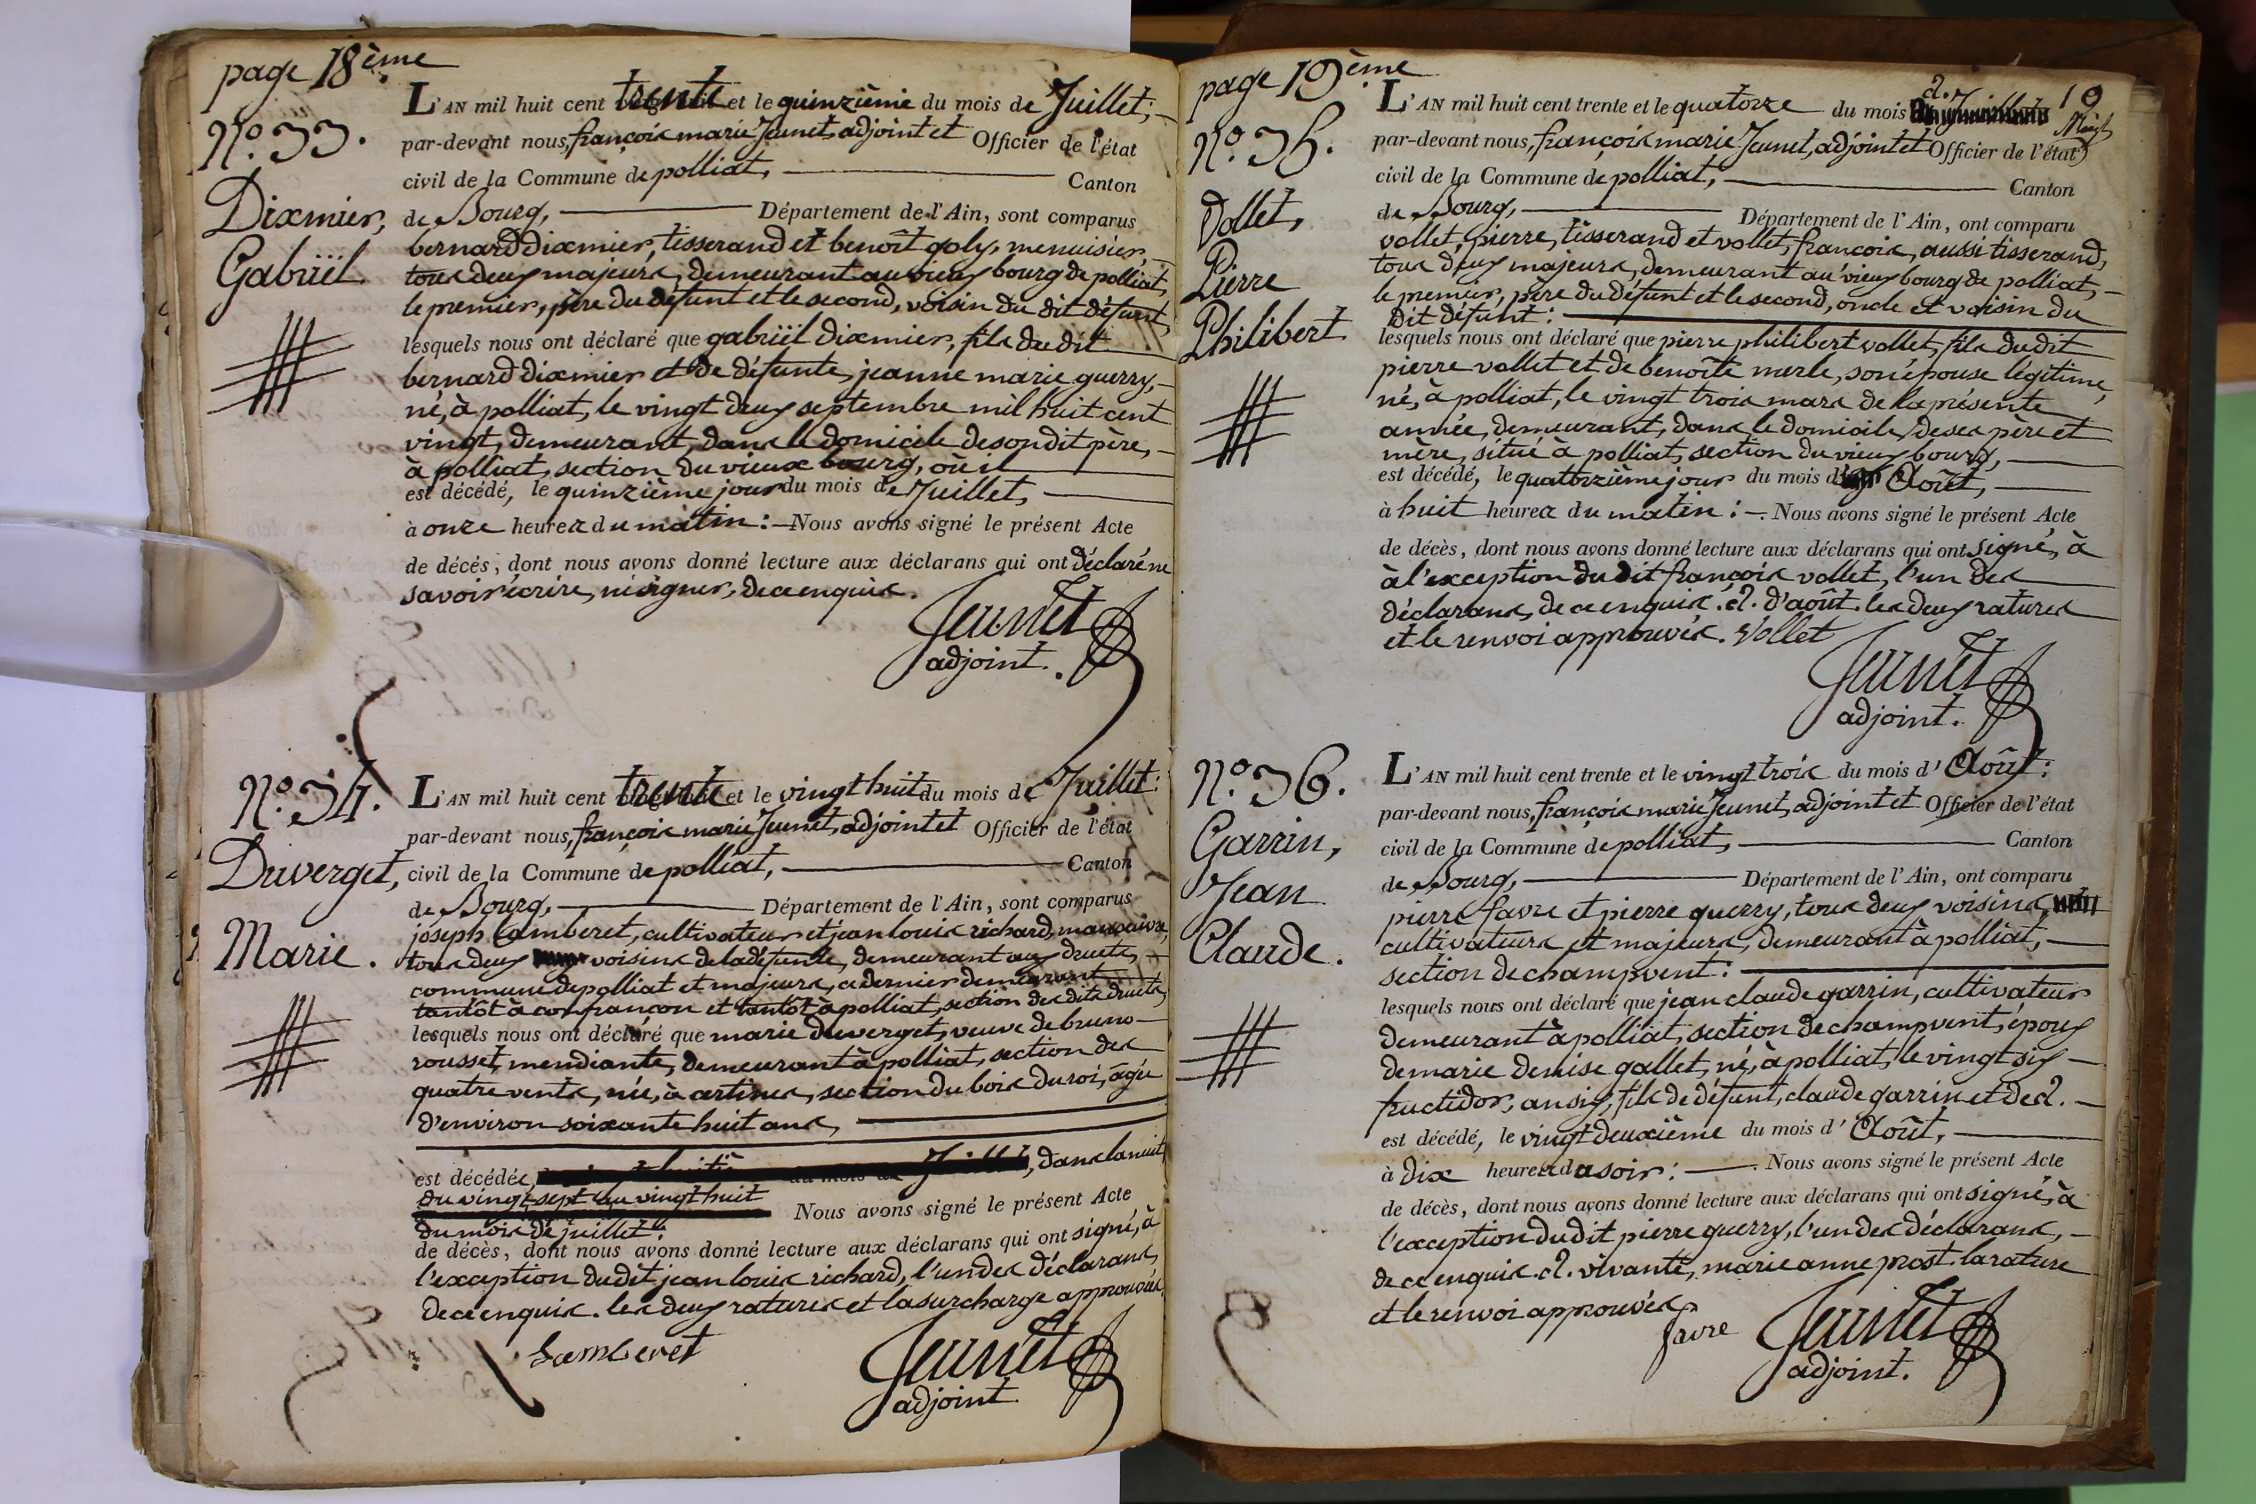 page 18ème
N.º 33.
Dixmier,
Gabriël.
L'AN mil huit cent trente et le quinzième du mois de Juillet;
par-devant nous, françois marie Jeunet, adjoint et Officier de l'état
civil de la Commune de polliat, Canton
de Bourg, Département de l'Ain, sont comparus
bernard dixmier, tisserand et benoît goly, menuisier,
tous deux majeurs, demeurant au vieux bourg de polliat,
le premier, père du défunt et le second, voisin du dit défunt,
lesquels nous ont déclaré que gabriël dixmier, fils du dit
bernard dixmier et de défunte, jeanne marie guerry,
né, à polliat, le vingt deux septembre mil huit cent
vingt, demeurant, dans le domicile de son dit père,
à polliat, section du vieux bourg, où il
est décédé, le quinzième jour du mois de Juillet,
à onze heures du matin : Nous avons signé le présent Acte
de décès, dont nous avons donné lecture aux déclarans qui ont déclaré ne
savoir écrire, ni signer, de ce enquis.
Jeunet
adjoint.
N.º 34.
Duverget,
Marie.
L'AN mil huit cent trente et le vingt huit du mois de Juillet :
par-devant nous, françois marie Jeunet, adjoint et Officier de l'état
civil de la Commune de polliat, Canton
de Bourg, Département de l'Ain, sont comparus
joseph Lamberet, cultivateur et jean louis richard, manœuvre,
tous deux voisins de la défunte, demeurant aux druets,
commune de polliat et majeurs, ce dernier demeurant
tantôt à confrançon et tantôt à polliat, section des dits druets,
lesquels nous ont déclaré que marie duverget, veuve de bruno
rousset, mendiante, demeurant à polliat, section des
quatre vents, née, à certines, section du bois du roi, âgée
d'environ soixante huit ans,
est décédée, dans la nuit
du vingt sept au vingt huit Nous avons signé le présent Acte
du mois de juillet :
de décès, dont nous avons donné lecture aux déclarans qui ont signé, à
l'exception du dit jean louis richard, l'un des déclarans,
de ce enquis. les deux ratures et la surcharge approuvées.
Lamberet
Jeunet
adjoint
page 19ème
19
N.º 35.
Vollet,
Pierre
Philibert
L'AN mil huit cent trente et le quatorze du mois
par-devant nous, françois marie Jeunet, adjoint et Officier de l'état
civil de la Commune de polliat, Canton
de Bourg, Département de l'Ain, ont comparu
vollet, pierre, tisserand et vollet, françois, aussi tisserand,
tous deux majeurs, demeurant au vieux bourg de polliat,
le premier, père du défunt et le second, oncle et voisin du
dit défunt :
lesquels nous ont déclaré que pierre philibert vollet, fils du dit
pierre vollet et de benoîte merle, son épouse légitime,
né, à polliat, le vingt trois mars de la présente
année, demeurant, dans le domicile de ses père et
mère, situé à polliat, section du vieux bourg,
est décédé, le quatorzième jour du mois d' Août,
à huit heures du matin : Nous avons signé le présent Acte
de décès, dont nous avons donné lecture aux déclarans qui ont signé, à
à l'exception du dit françois vollet, l'un des
déclarans, de ce enquis. d'août. les deux ratures
et le renvoi approuvés. Vollet
Jeunet
adjoint.
N.º 36.
Garrin,
Jean
Claude.
L'AN mil huit cent trente et le vingt trois du mois d' Août :
par-devant nous, françois marie Jeunet, adjoint et Officier de l'état
civil de la Commune de polliat, Canton
de Bourg, Département de l'Ain, ont comparu
pierre favre et pierre guerry, tous deux voisins,
cultivateurs et majeurs, demeurant à polliat,
section de champvent :
lesquels nous ont déclaré que jean claude garrin, cultivateur
demeurant à polliat, section de champvent, époux
de marie denise gallet, né, à polliat, le vingt six
fructidor, an six, fils de défunt, claude garrin et de
est décédé, le vingt deuxième du mois d' Août,
à dix heures du soir : Nous avons signé le présent Acte
de décès, dont nous avons donné lecture aux déclarans qui ont signé, à
l'exception du dit pierre guerry, l'un des déclarans,
de ce enquis. vivante, marie anne prost. la rature
et le renvoi approuvés.
favre
Jeunet
adjoint.